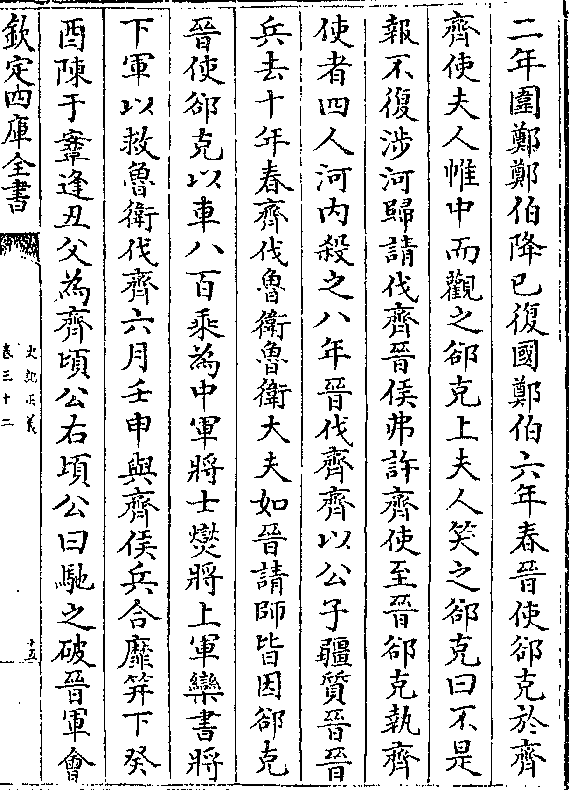 二年圍鄭鄭伯降已復國鄭伯六年春晉使郤克於齊
齊使夫人帷中而觀之郤克上夫人笑之郤克曰不是
報不復涉河歸請伐齊晉侯弗許齊使至晉郤克執齊
使者四人河内殺之八年晉伐齊齊以公子彊質晉晉
兵去十年春齊伐魯衛魯衛大夫如晉請師皆因郤克
晉使郤克以車八百乘為中軍將士燮將上軍欒書將
下軍以救魯衛伐齊六月壬申與齊侯兵合靡筓下癸
酉陳于鞌逢丑父為齊頃公右頃公曰馳之破晉軍會
欽定四庫全書
史記正義
卷三十二
十五